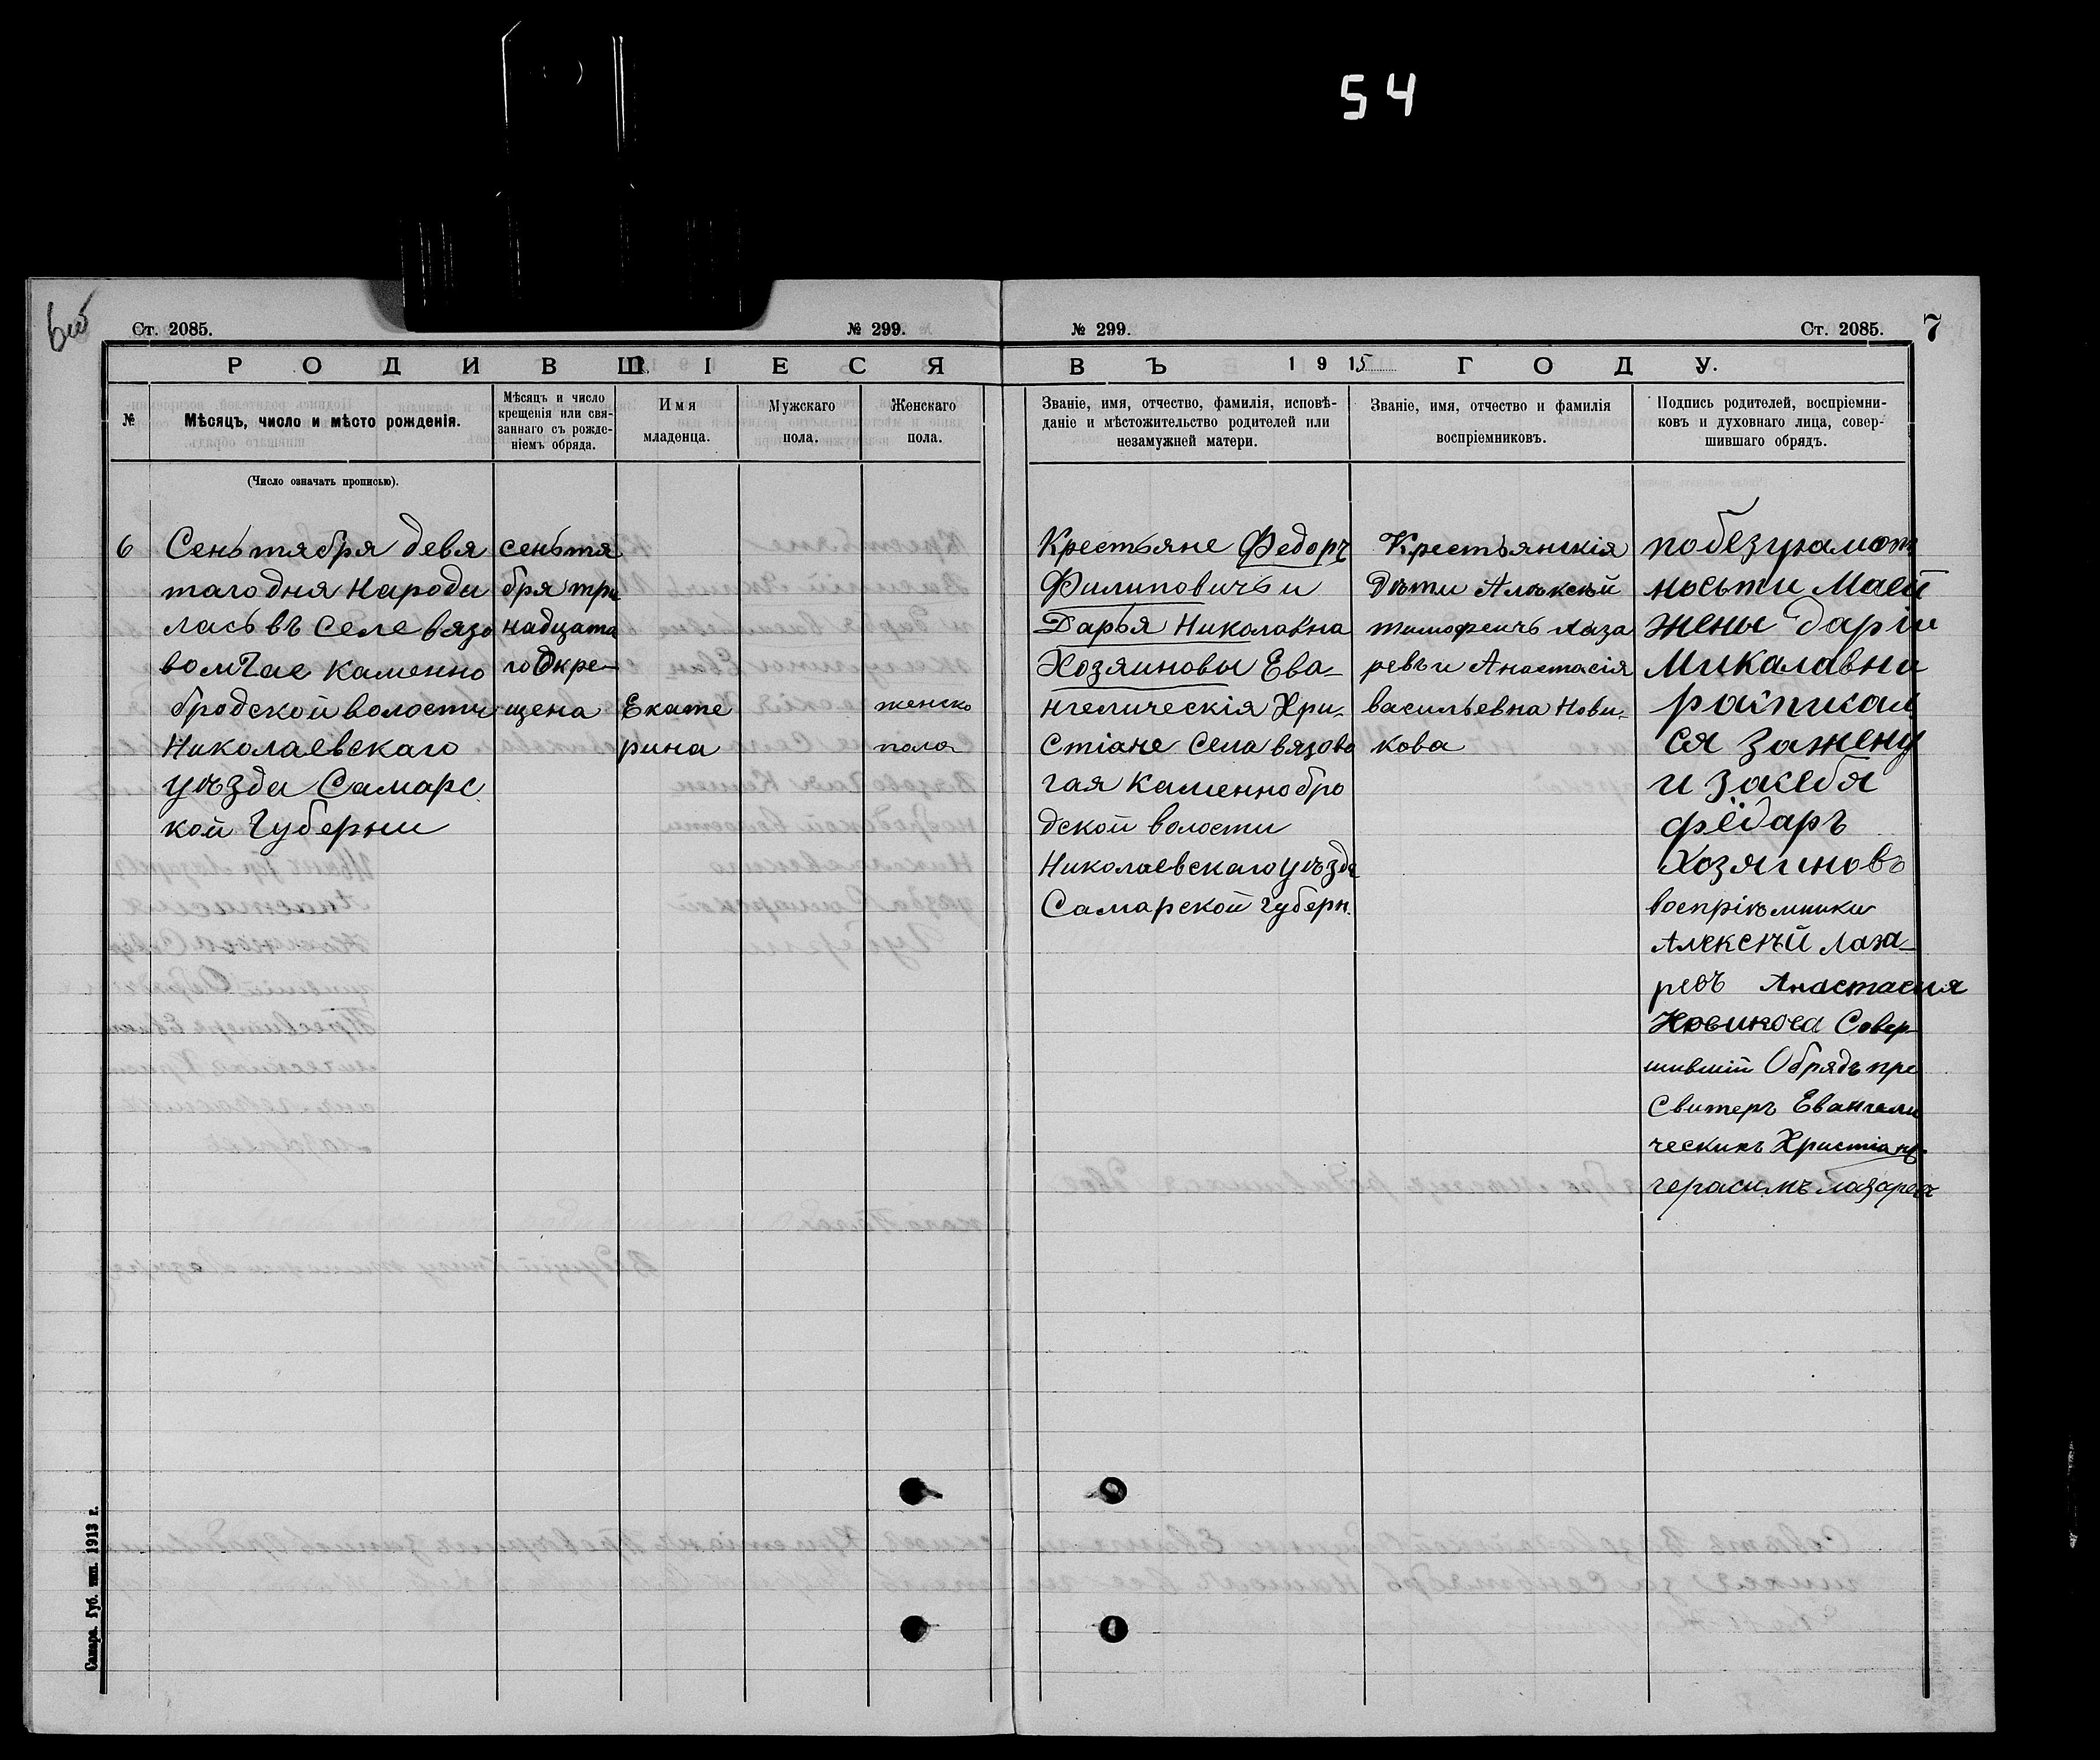 54
Ст. 2085.
№ 299.
№ 299.
Ст. 2085.
7
РОДИВШІЕСЯ
ВЪ 1915 ГОДУ.
№
Мѣсяцъ, число и мѣсто рожденія.
Мѣсяцъ и число
крещенія или свя-
заннаго съ рожде-
ніемъ обряда.
Имя
младенца.
Мужскаго
пола.
Женскаго
пола.
Званіе, имя, отчество, фамилія, исповѣ-
даніе и мѣстожительство родителей или
незамужней матери.
Званіе, имя, отчество и фамилія
воспріемниковъ.
Подпись родителей, воспріемни-
ковъ и духовнаго лица, совер-
шившаго обрядъ.
(Число означать прописью).
6
Сеньтября девя
таго дня Народи
лась въ Селе вязо
вомъ Гае Каменно
бродской волости
Николаевскаго
уѣзда Самарс
кой Губерни
сеньтя
бря три
надцата
го Окре-
щена
Екате
рина
женско
пола
Крестьяне Федоръ
Филиповичъ и
Дарья Николавна
Хозяиновы Ева-
нгелическія Хри-
стіане Села вязово
гая Каменнобро
дской волости
Николаевскаго уѣзда
Самарской губерн.
Крестьянскія
Дѣти Алѣксѣй
тимофеичъ Лаза
ревъ и Анастасія
васильевна Нови-
кова
побезграмот
носьти Маей
жены даріи
Микалавни
распикал
ся зажену
и засебя
фёдаръ
Хозяиновъ
воспріѣмники
Алексѣй Лаза-
ревъ Анастасия
Новикова Совер-
шивший Обрядъ пре
Свитеръ Евангели
ческихъ Христіанъ
герасимъ лазаревъ
Самара. Губ. тип. 1913 г.